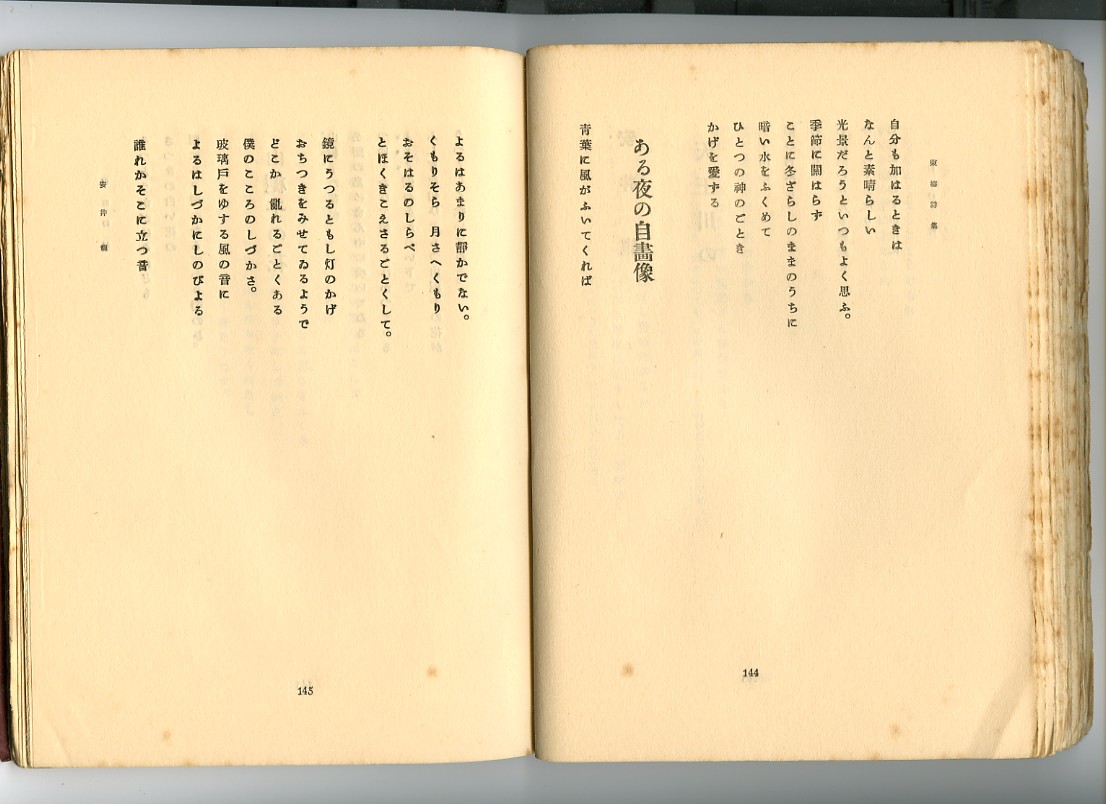 東郷詩集
自分も加はるときは
なんと素晴らしい
光景だろうといつもよく思ふ。
季節に關はらず
ことに冬ざらしのままのうちに
暗い水をふくめて
ひとつの神のごとき
かげを愛する
ある夜の自畫像
青葉に風がふいてくれば
144
よるはあまりに靜かでない。
くもりそら 月さへくもり
おそはるのしらべ
とほくきこえさるごとくして。
鏡にうつるともし灯のかげ
おちつきをみせてゐるようで
どこか 亂れるごとくある
僕のこころのしづかさ。
玻璃戸をゆする風の音に
よるはしづかにしのびよる
誰れかそこに立つ音
安井
145